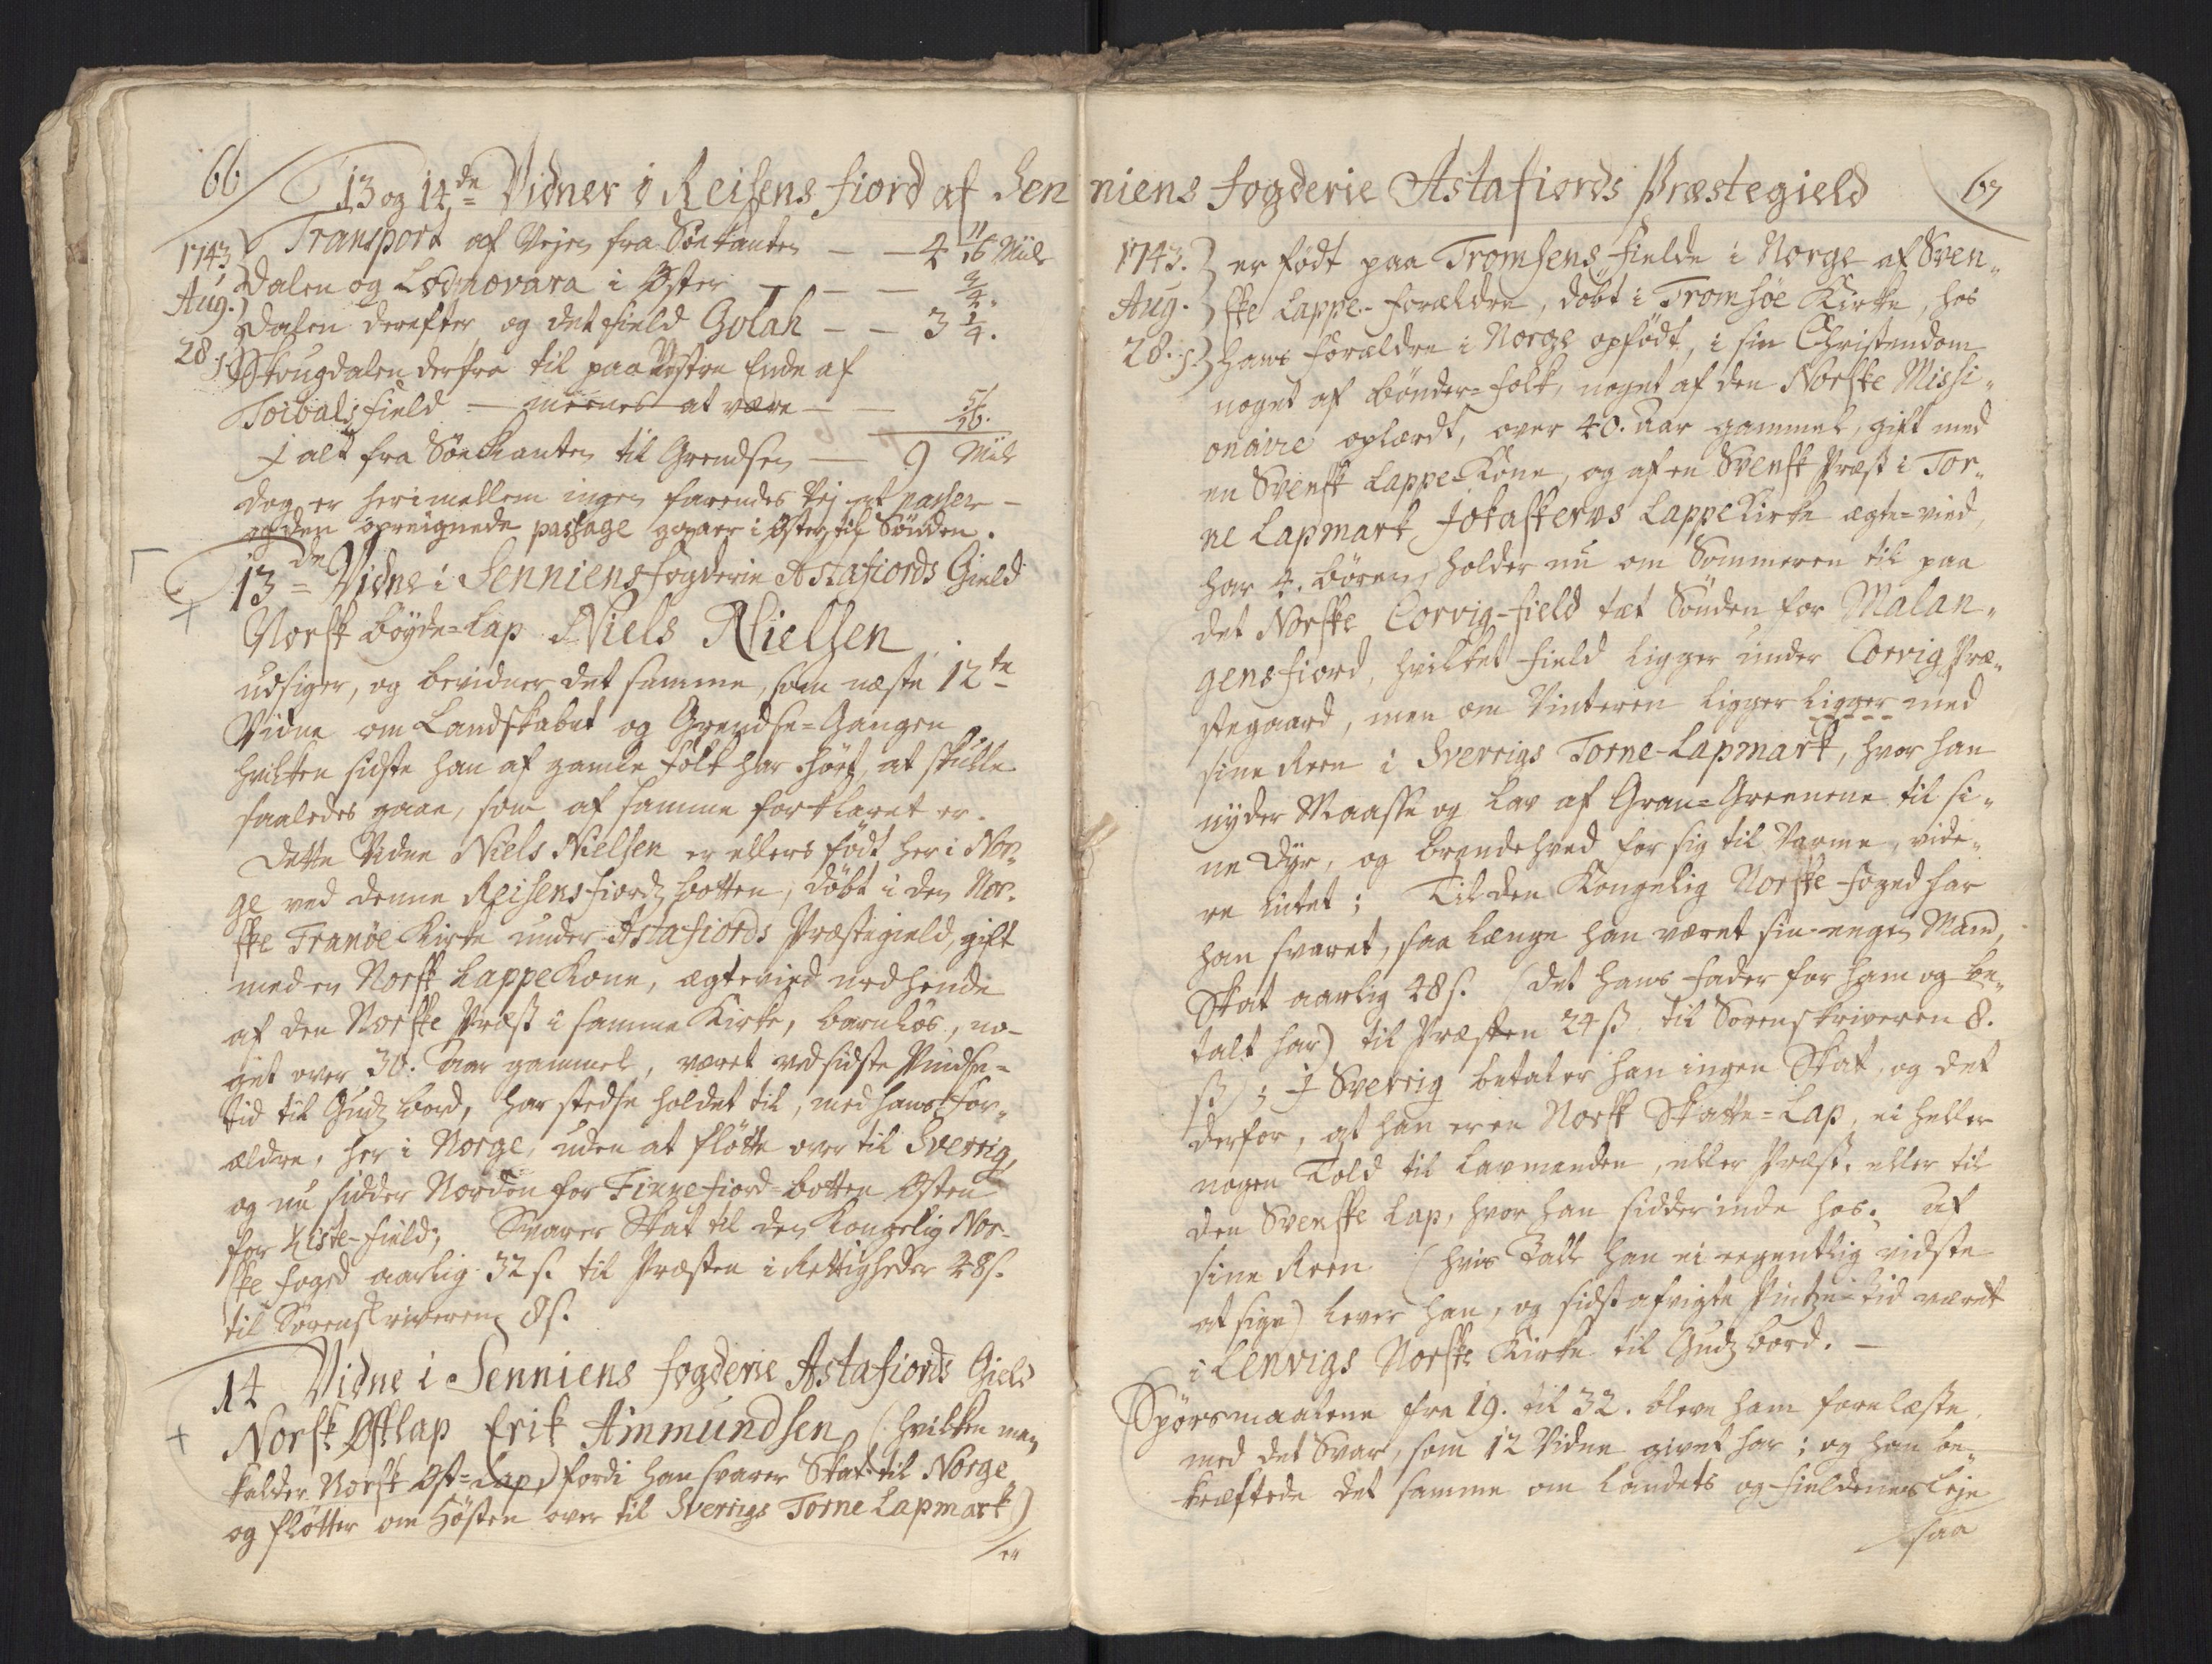 66
13 og 14de Vidner i Reisens fiord af Sen
1743
Aug.
28 s.
Transport af Vejen fra Søekanten — — 4 11/16 Miil
Dalen og Lodnovara i Øster — — — 3/4.
Dalen derefter og det field Golah — — 3 1/4.
Skougdalen derfra til paa Vestre Ende af
Toivalsfield — meenes at være — — 5/16.
J alt fra Søe Kanten til Grendsen — 9 Miil
dog er herimellem ingen farendes Vej at passere —
og den passage gaaer i Øster til Sønden.
13de Vidne i Senniens fogderie Astafiords Gield
Norsk bøyde-Lap Niels Nielsen
udsiger, og bevidner det samme, som næste 12te
Vidne om Landskabet og Grendse-Gangen
hvilken sidste han af gamle folk har hørt, at skulle
saaledes gaae, som af samme forklaret er.
Dette Vidne Niels Nielsen er ellers født her i Nor-
ge ved denne Reisensfiords botten, døbt i den Nor-
ske Tranøe Kirke under Astafiords Præstegield, gift
med en Norsk Lappe Kone, ægteviet med hende
af den Norske Præst i samme Kirke, barnløs, no-
get over 30. Aar gammel, været ved sidste Pindse-
tid til Gudz bord, har stedse holdet til, med hans for-
ældre, her i Norge, uden at fløtte over til Sverrig,
og nu sidder Norden for Finnefiord-botten Østen
for Kiste-field; Svarer Skat til den Kongelig Nor-
ske foged aarlig 32 s. til Præsten i Rettigheder 48 s.
til Sorenskriveren 8 s.
14 Vidne i Senniens fogderie Astafiords Gield
Norsk Østlap Erik Ammundsen (hvilken man
kalder Norsk Øst-Lap, fordi han svarer Skat til Norge
og fløtter om Høsten over til Sverrigs Torne Lapmark)
er
niens fogderie Astafiords Præstegield
67
1743.
Aug.
28. s.
er født paa Tromsens fielde i Norge af Sven-
ske Lappe-forældre, døbt i Tromsøe Kirke, hos
hans forældre i Norge opfødt, i sin Christendom
noget af bønder-folk, noget af den Norske Missi-
onaire oplærdt, over 40. Aar gammel, gift med
en Svensk Lappe Kone, og af en Svensk Præst i Tor-
ne Lapmark Jokaskervs Lappe Kirke ægte-vied,
har 4. børn, holder nu om Sommeren til paa
det Norske Corvig-field tæt Sønden for Malan-
gensfiord, hvilket field ligger under Corvig Præ-
stegaard, men om Vinteren ligger ligger med
sine Reen i Sverrigs Torne-Lapmark, hvor han
nyder Maasse og Lav af Gran-Greenene til si-
ne Dyr, og brændehved for sig til Varme, vide-
re intet; Til den Kongelig Norske foged har
han svaret, saa længe han været sin egen Mand,
Skat aarlig 48 s. (det hans fader for ham og be-
talt har) til Præsten 24 ß til Sorenskriveren 8.
ß; J Sverrig betaler han ingen Skat, og det
derfor, at han er en Norsk Skatte-Lap, ei heller
nogen Told til Lavmanden, eller Præst, eller til
den Svenske Lap, hvor han sidder inde hos. Af
sine Reen (hvis Tall han ei egentlig vidste
at sige) lever han, og sidst afvigte Pintze-tid været
i Lenvigs Norske Kirke til Gudz bord. —
Spørsmaalene fra 19. til 32. bleve ham forelæste
med det Svar, som 12 Vidne givet har; og han be-
kræftede det samme om Landets og fieldenes Leje
saa